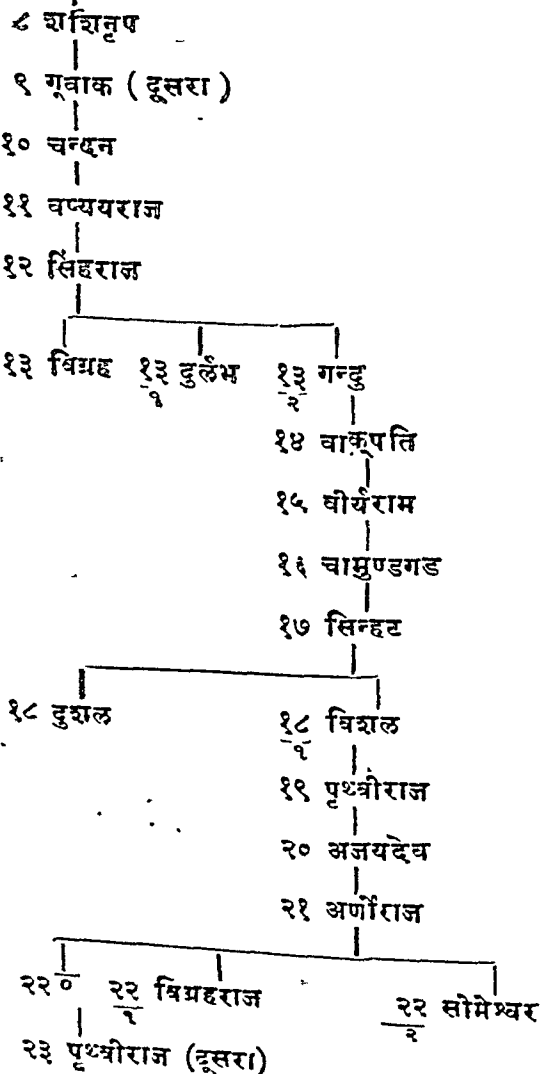 ८ शशिनृप
९ गूवाक ( दूसरा )
१० चन्दन
११ वप्ययराज
१२ सिंहराज
१३ विग्रह १३/१ दुर्लभ १३/२ गन्दु
१४ वाक्पति
१५ वीर्यराम
१६ चामुण्डगड
१७ सिन्हट
१८ दुशल १८/१ विशल
१९ पृथ्वीराज
२० अजयदेव
२१ अर्णोराज
२२ ० २२/१ विग्रहराज २२/२ सोमेश्वर
२३ पृथ्वीराज (दूसरा)